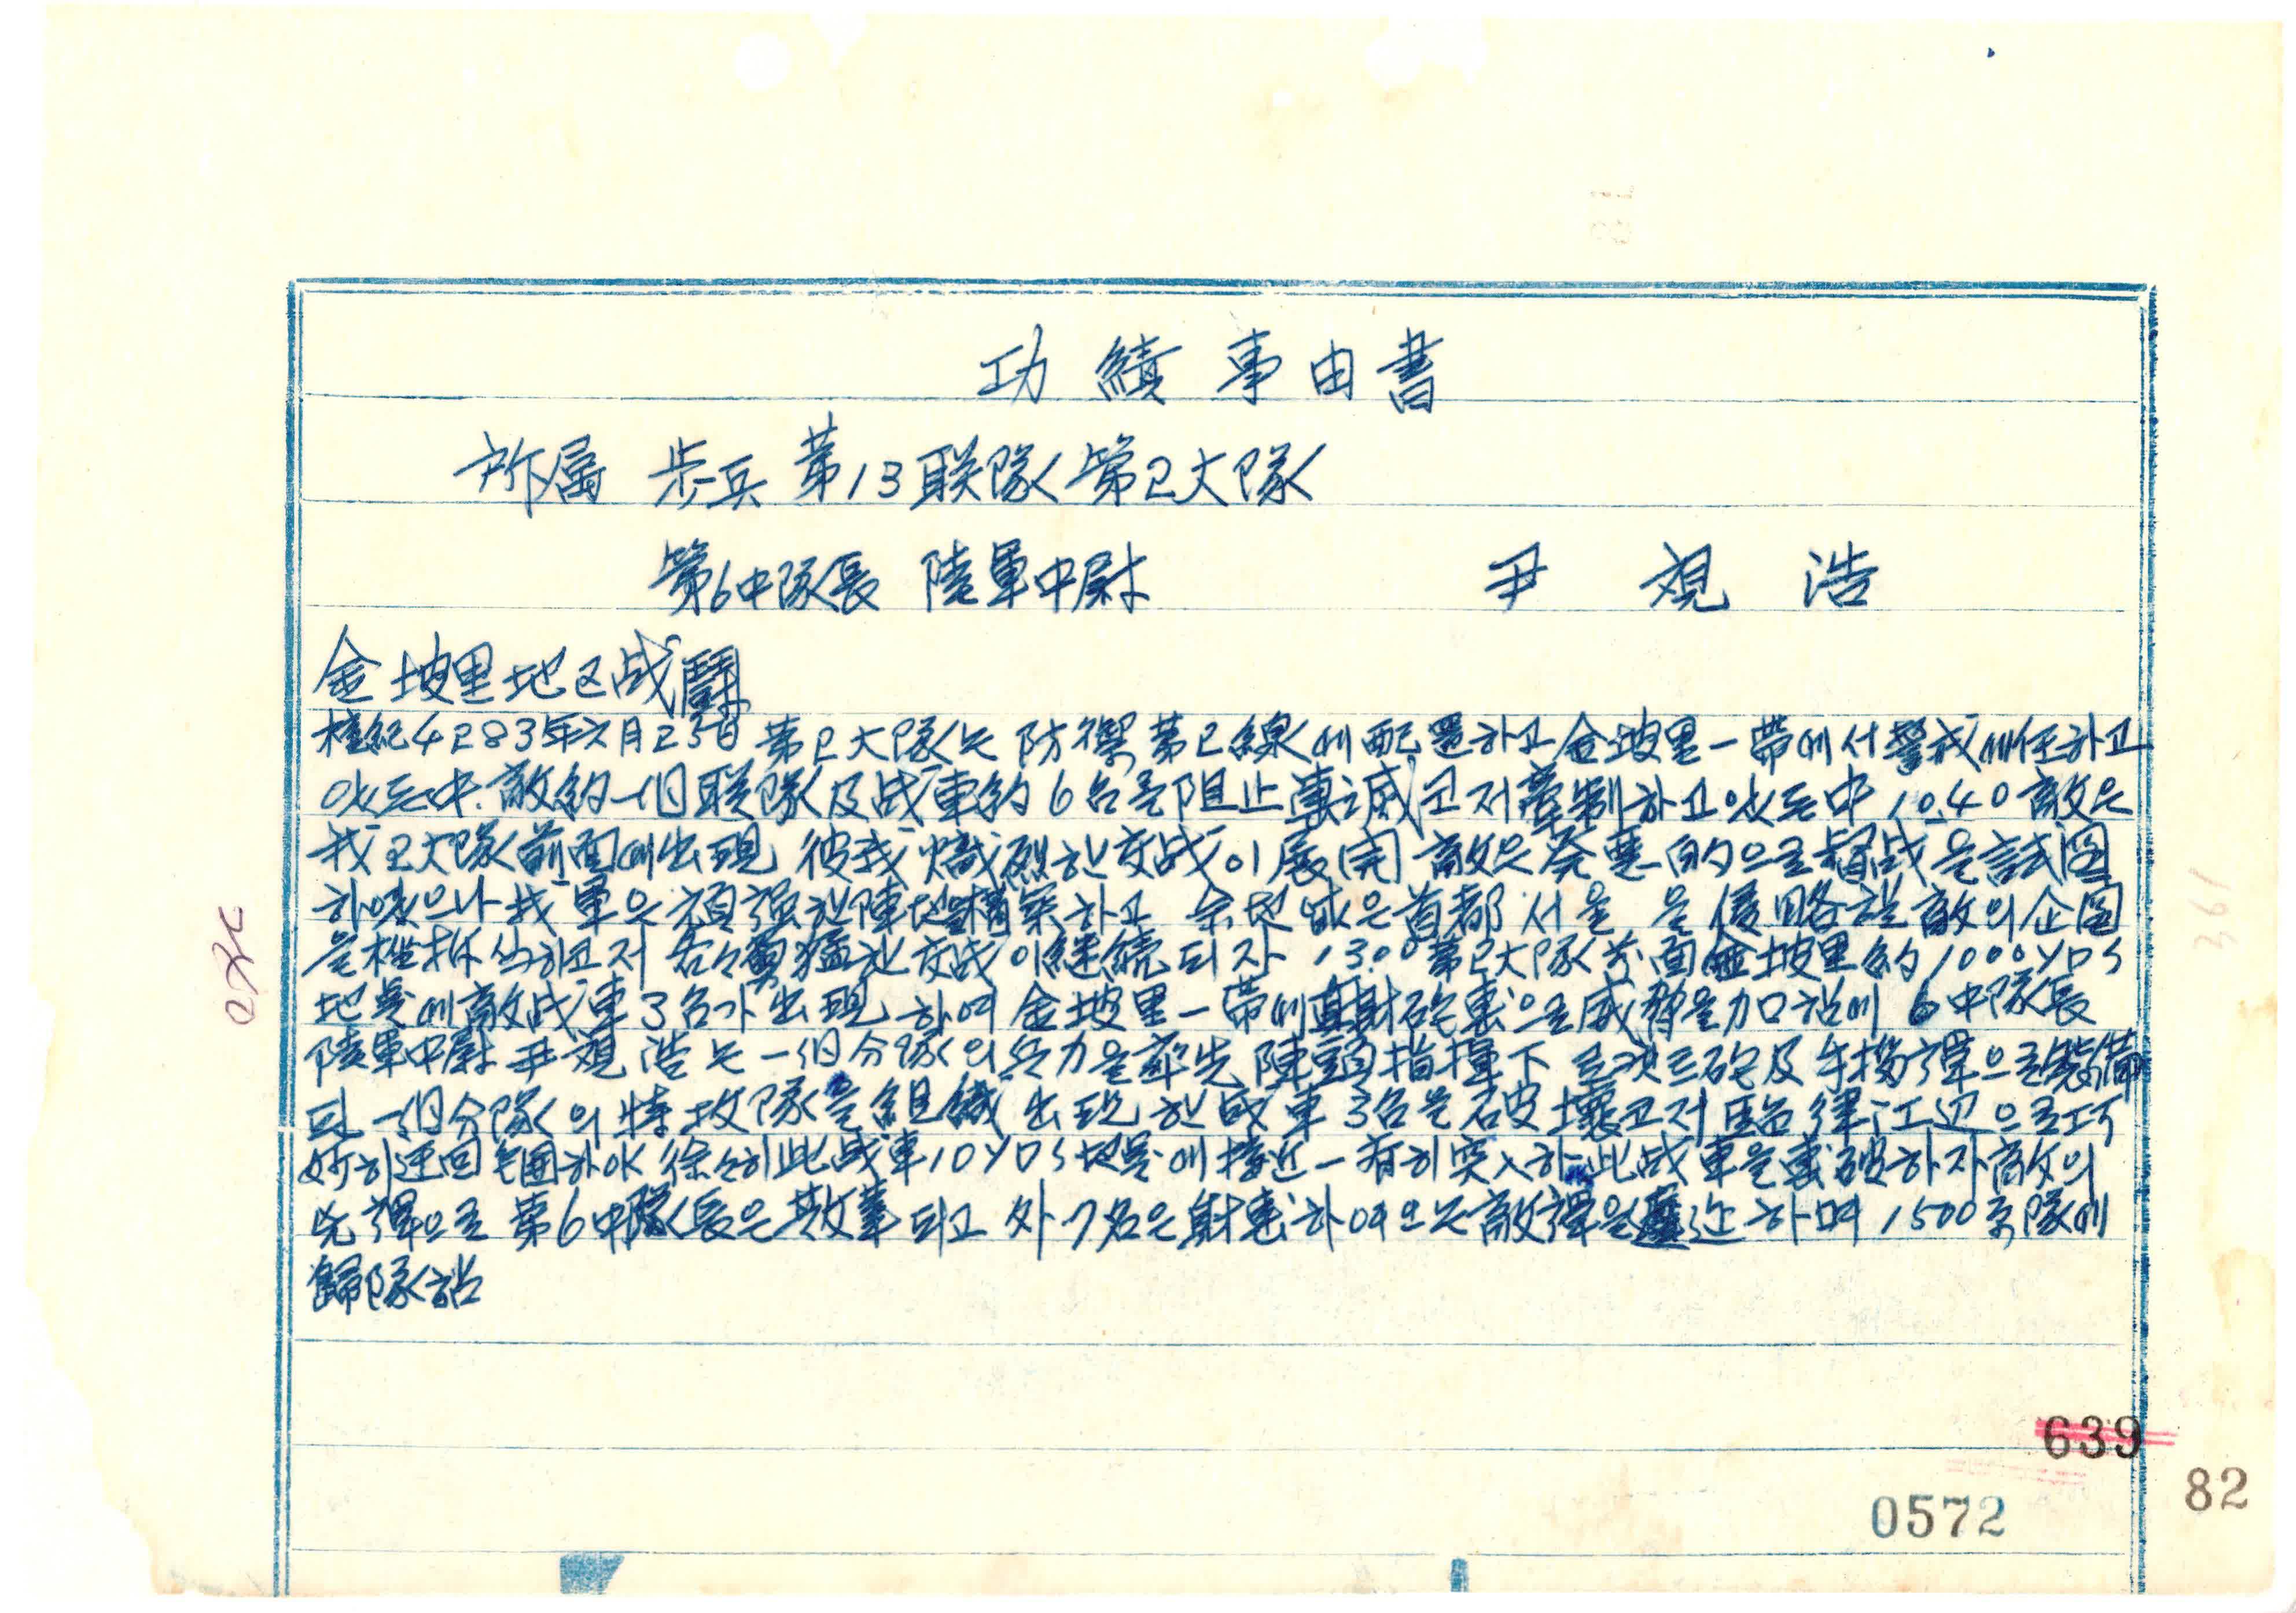 功績事由書
所属 步兵 第13联隊 第2大隊
第6中隊長 陸軍中尉 尹 覌 浩
金坡里地区战鬪
檀紀4283年六月25日 第2大隊는 防禦第2線에 配置하고 金坡里一帶에서 警戒에 任하고
있든中 敵約一個联隊及战車約6台를 阻止 고저 牽制하고 있든中 10.40 敵은
我2大隊前面에 出現 彼我 熾烈한 交战이 展開 敵은 発悪的으로 战을 試図
하였으나 我軍은 頑强한 陣地를 構築하고 首都 서울을 侵略할 敵의 企図
를 挫折 식히고저 各々勇猛한 交战이 継続되자 13.00 第2大隊 面 金坡里 約1000YDS
地点에 敵战車3台가 出現하여 金坡里一帶에 直射砲擊으로 威脅을 加함에 6中隊長
陸軍中尉 尹覌浩는 一個分隊의 兵力을 率先陣頭指揮下 로켓트砲及手榴彈으로 裝備
된 一個分隊의 特攻隊를 組織 出現한 战車3台를 破壞코저 臨津江辺으로 巧
妙히 迂回 包囲하야 徐々히 此战車10YDS地点에 接近 一斉히 突入하 此战車를 擊破하자 敵의
彈으로 第6中隊長은 散華되고 外7名은 射擊하여오는 敵彈을 하며 1500 隊에
歸隊함
639
0572
82
361